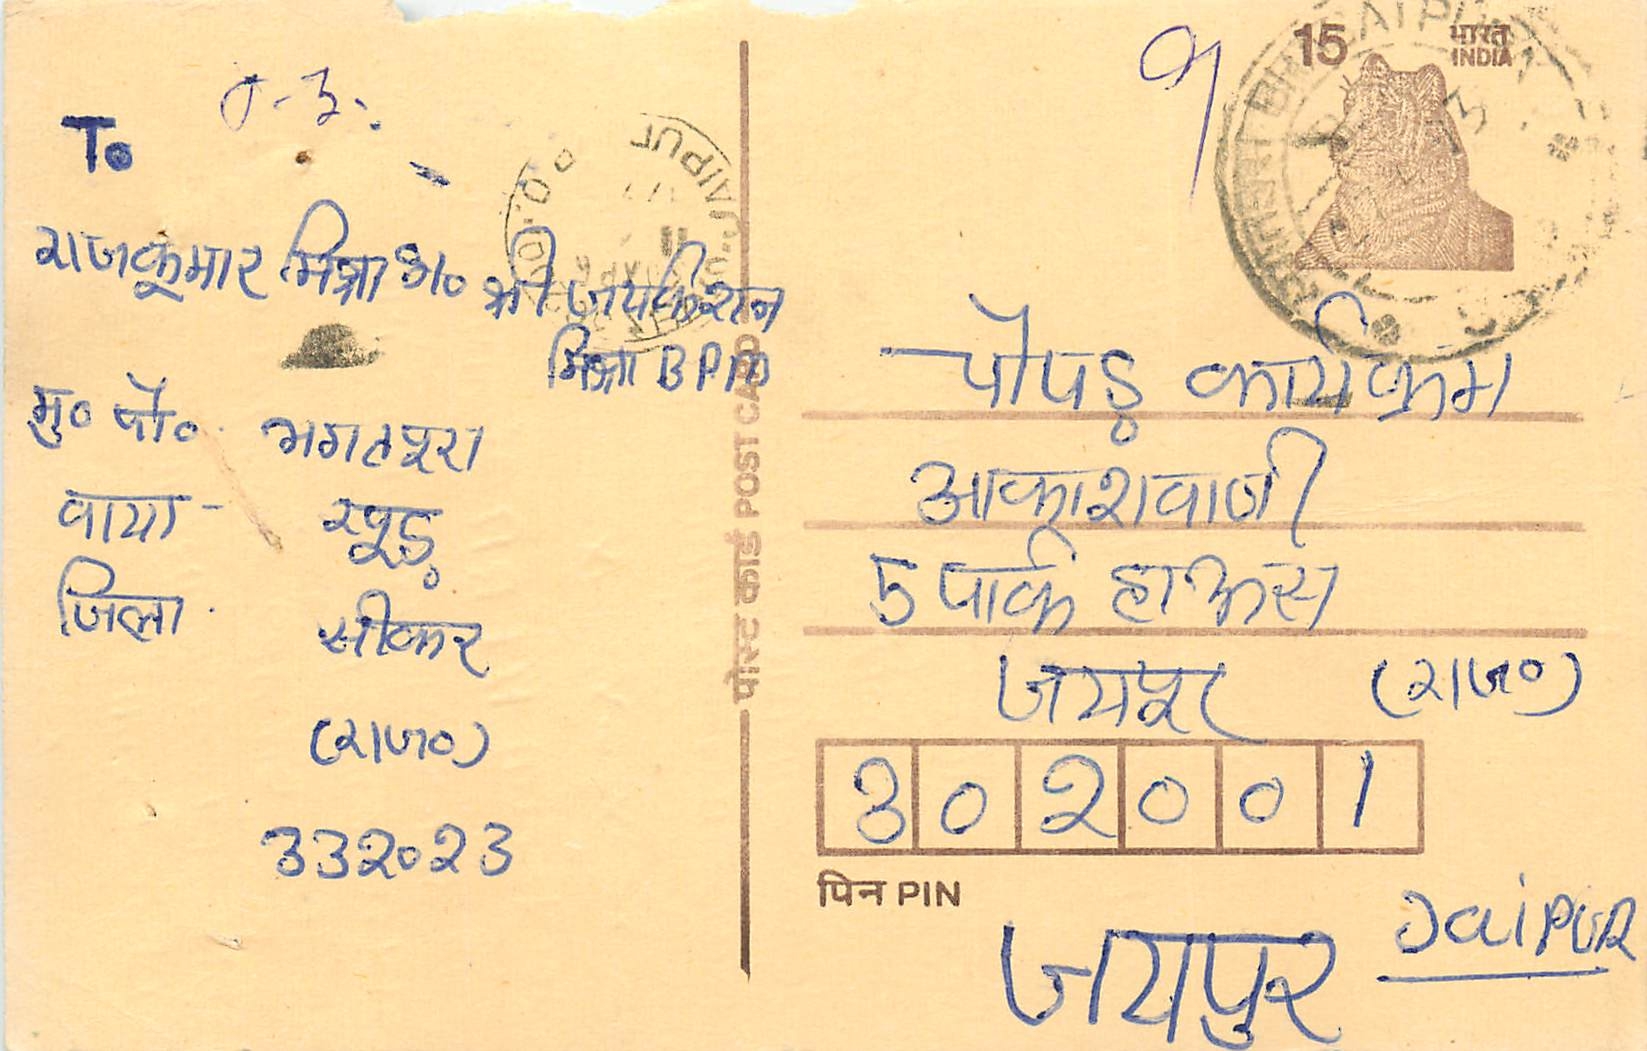 To
राजकुमार मिश्रा S/o श्री जयकिशन
मिश्रा B P M
मु० पो० भगतपूरा
वाया - खूड़
जिला सीकर
(राज०)
332023
पोस्ट कार्ड POST CARD
15 भारत
INDIA
चौपड़ कार्यक्रम
आकाशवाणी
5 पार्क हाऊस
जयपूर (राज०)
302001
पिन PIN
JaiPUR
जयपुर